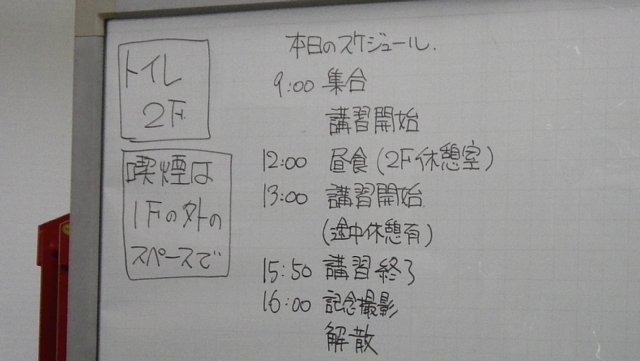 トイレ
2F
喫煙は
1Fの外の
スペースで
本日のスケジュール.
9:00 集合
講習開始
12:00 昼食(2F休憩室)
13:00 講習開始
(途中休憩有)
15:50 講習終了
16:00 記念撮影
解散